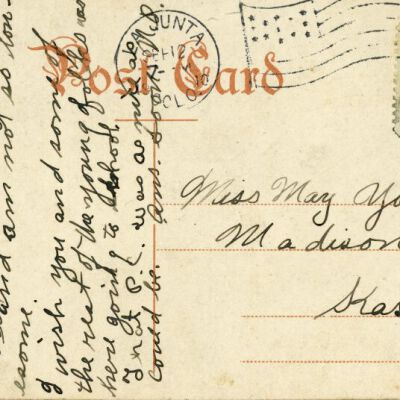 Post Card
JUNTA
COLO.
and am not so lon
esome.
I wish you and some of
the rest of the young folks was
here going to school
That P.C. was as nice as
could be. Ans. soon
Miss May Yo
Madison
Kas